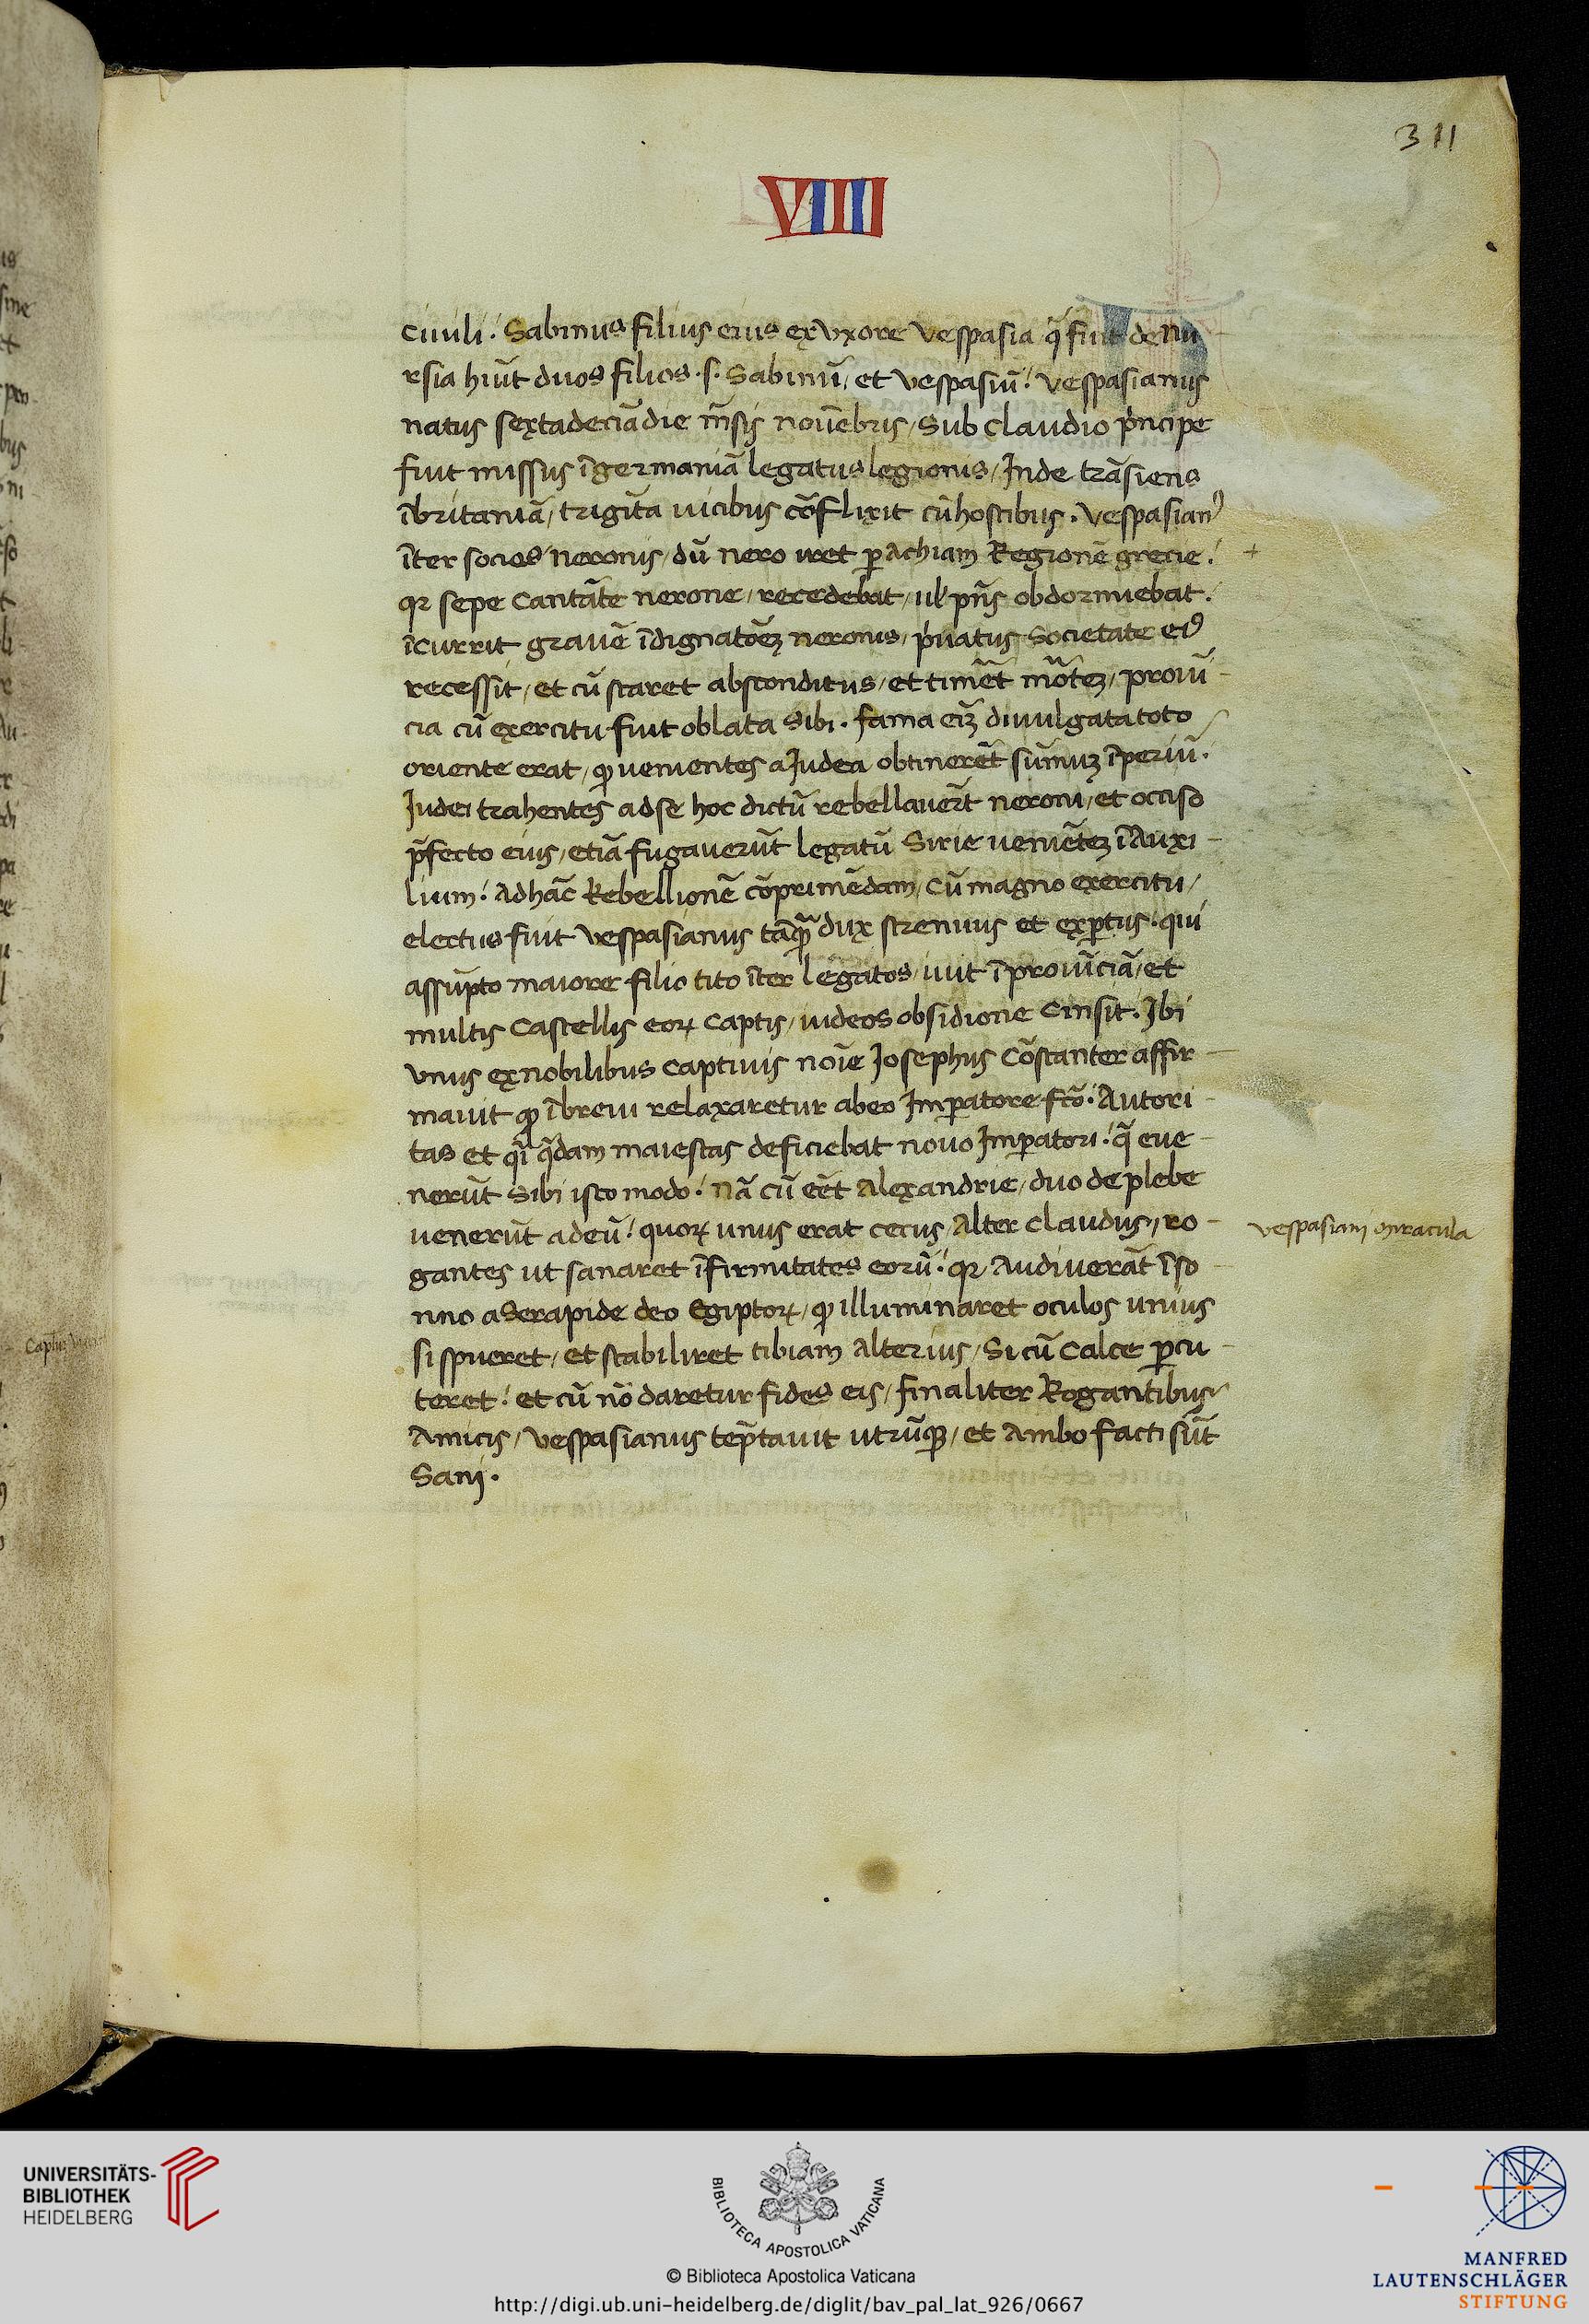 311
VIIII
ciuili. Sabinus filius eius ex uxore vespasia q̄ fuit de Nu
rsia hiūt duos filios .s. Sabinū / et vespasiū. vespasianus
natus sexta deciā die m̄sis nouēbris / Sub claudio p̓ncipe
fuit missus ī germaniā legatus legionis / Inde trāsiens
ī britaniā / trigīta uicibus cōflixit cū hostibus. vespasianꝰ
īter socios neronis / dū nero iret ꝑ Achiam Regionē grecie.
qꝛ sepe cantāte nerone / recedebat / ul' pn̄s obdormiebat.
īcurrit grauē īdignatōeꝫ neronis / p̓uatus societate eiꝰ
recessit / et cū staret absconditus / et timēt mōteꝫ / prouī
cia cū exercitu fuit oblata sibi. fama eīꝫ diuulgata toto
oriente erat / ꝙ uenientes a Iudea obtinerēt sūmuꝫ īperiū.
Iudei trahentes ad se hoc dictū rebellauer̄t neroni / et occiso
p̄fecto eius / etiā fugauerūt legatū Sirie ueniēteꝫ ī Auxi
lium. Ad hāc Rebellionē cōprimēdam / cū magno exercitu /
electus fuit vespasianus tāqꝫ dux strenuus et exꝑtus. qui
assūpto maiore filio tito īter legatos / iuit ī prouīciā / et
multis Castellis eoꝝ captis / iudeos obsidione cinsit. Ibi
unus ex nobilibus captiuis noīe Josephus cōstanter affir
mauit ꝙ ī breui relaxaretur ab eo Imꝑatore fc̄o. Autori
tas et qī q̄dam maiestas deficiebat nouo Imꝑatori. q̄ eue
nerūt sibi isto modo. nā cū eēt Alexandrie / duo de plebe
uenerūt ad eū. quoꝝ unus erat cecus / alter claudus / ro
gantes ut sanaret īfirmitates eorū. qꝛ Audiuerāt ī so
nno a Serapide deo Egiptoꝝ / ꝙ illuminaret oculos unius
si spueret / et stabiliret tibiam alterius / Si cū calce ꝑcu
teret. et cū nō daretur fides eis / finaliter Rogantibus
Amicis / vespasianus tēptauit utrūqꝫ / et Ambo facti sūt
Sani.
vespasiani miracula
UNIVERSITÄTS-
BIBLIOTHEK
HEIDELBERG
BIBLIOTECA APOSTOLICA VATICANA
© Biblioteca Apostolica Vaticana
http://digi.ub.uni-heidelberg.de/diglit/bav_pal_lat_926/0667
MANFRED
LAUTENSCHLÄGER
STIFTUNG